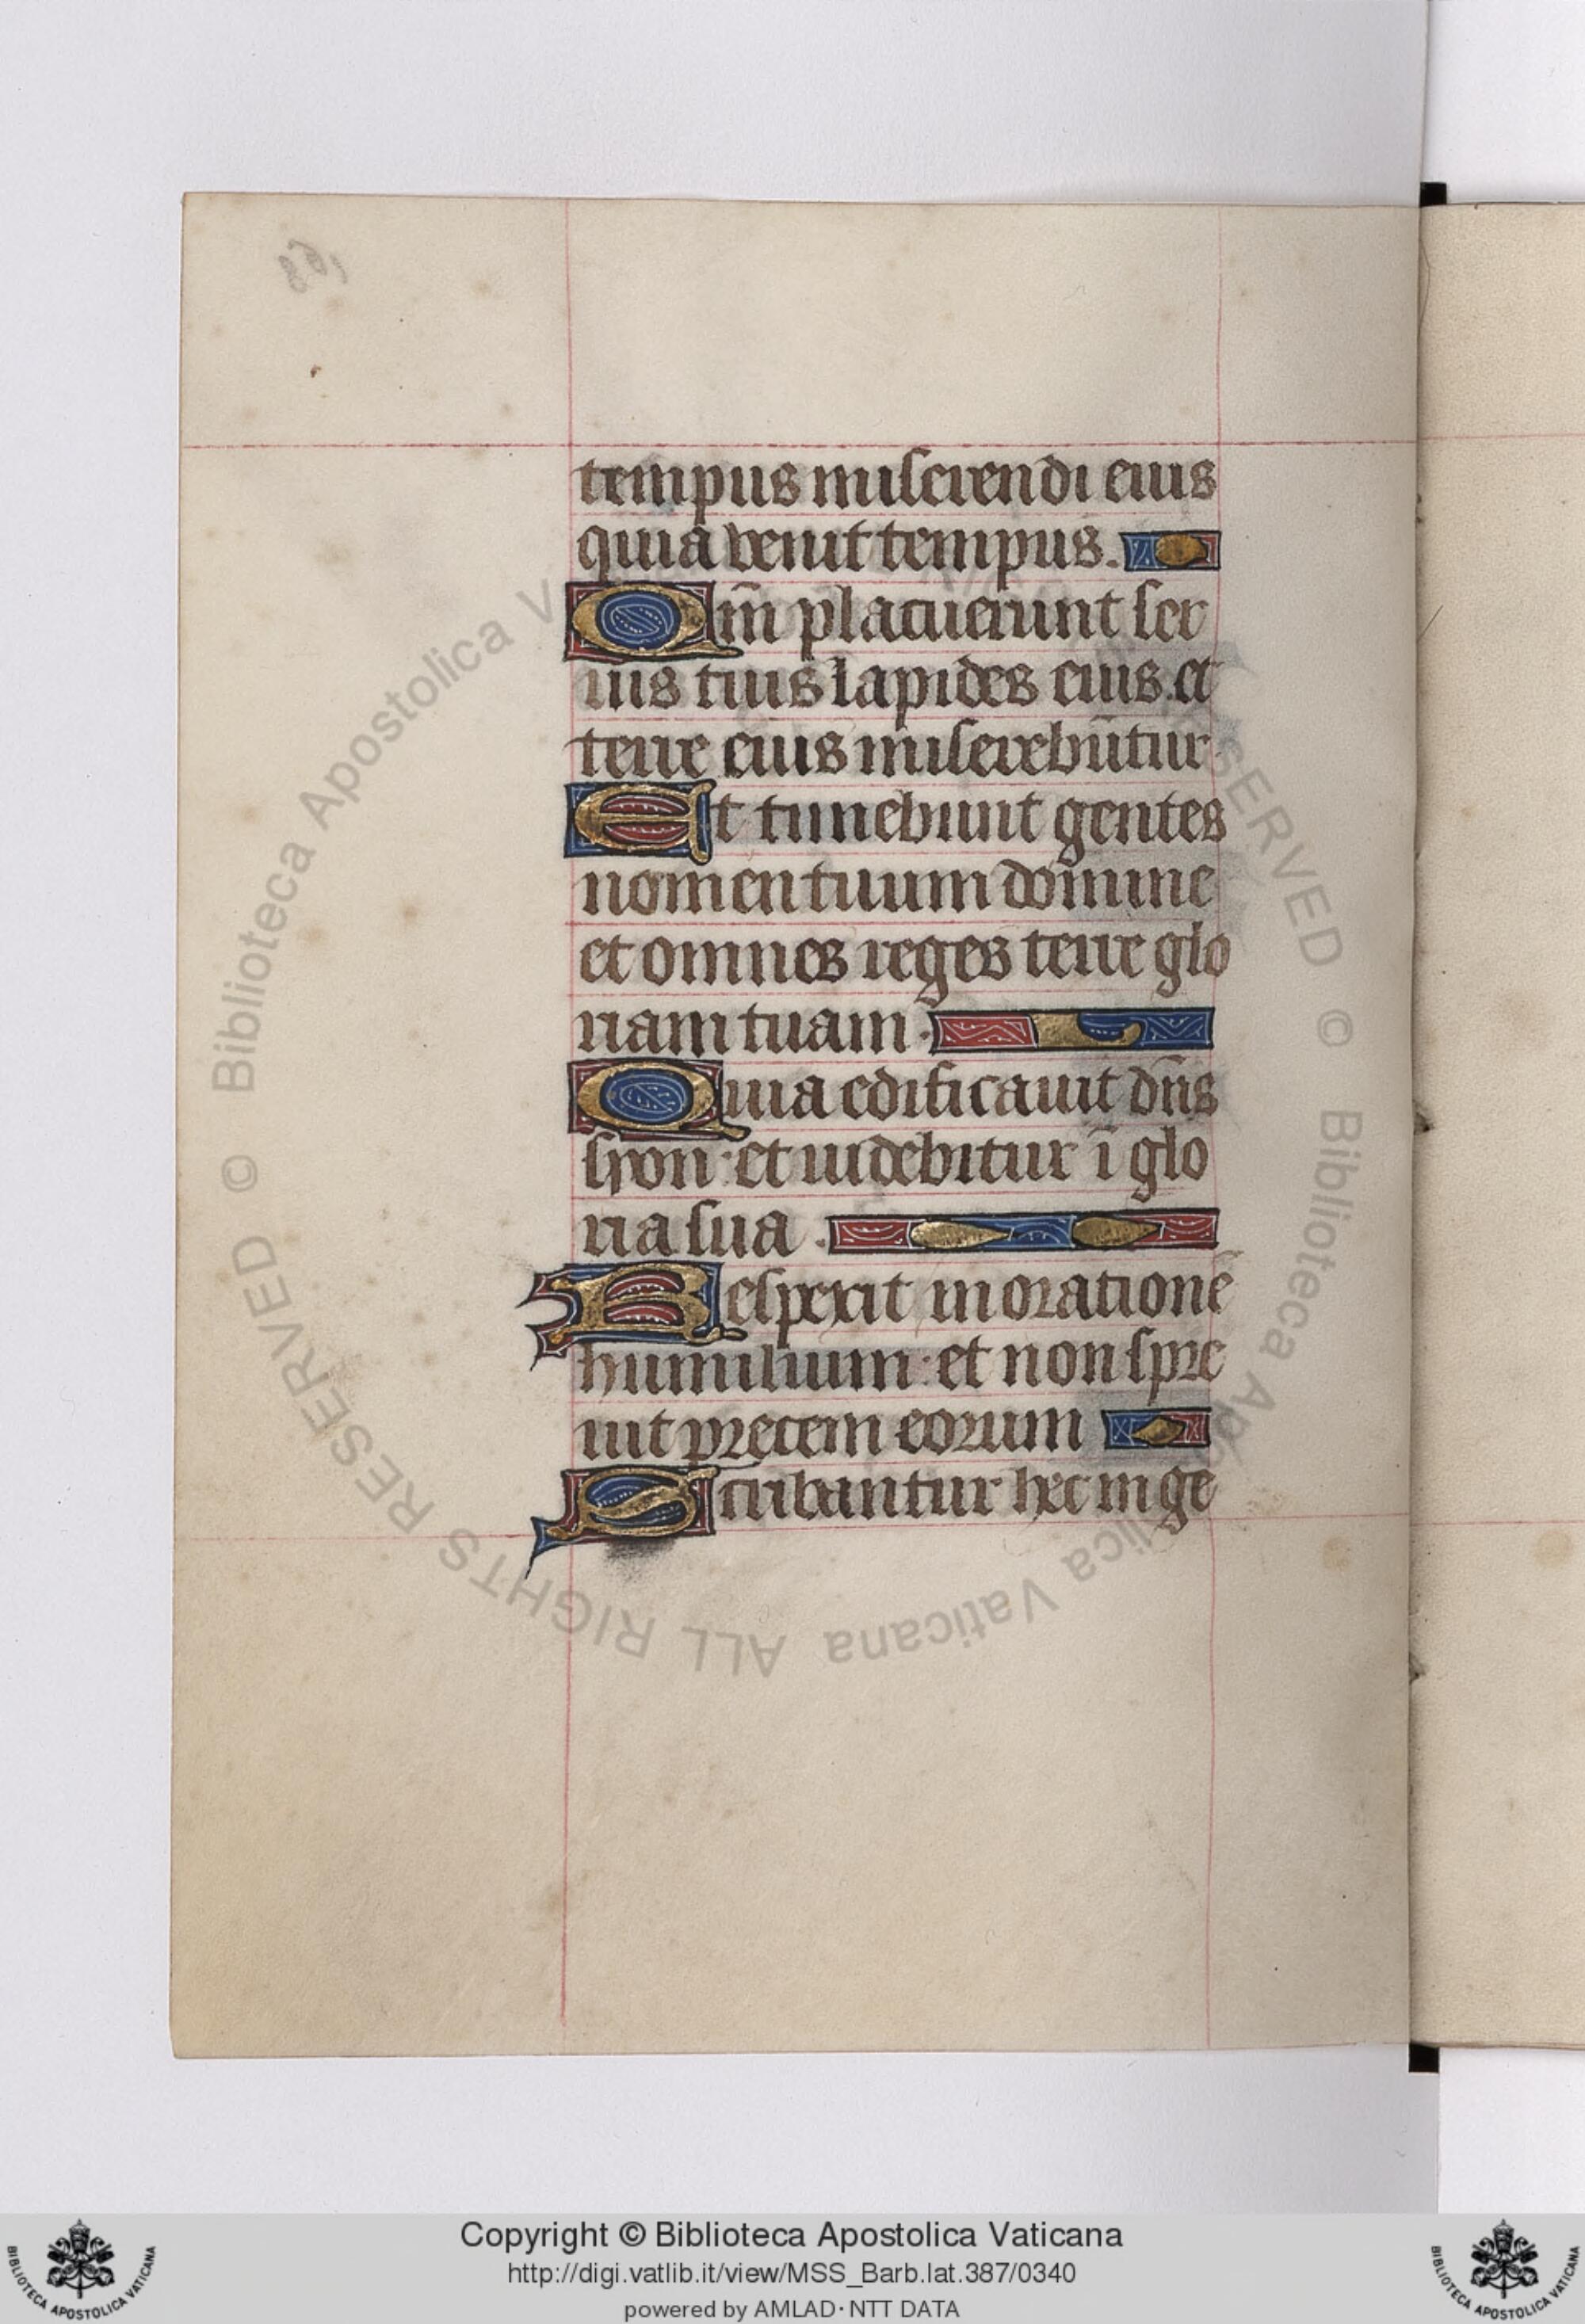 tempus miserendi eius
quia venit tempus.
Qm̄ placuerunt ser
uis tuis lapides eius. et
terre eius miserebūtur
Et timebunt gentes
nomen tuum domine
et omnes reges terre glo
riam tuam.
Quia edificauit dn̄s
syon: et uidebitur ī glo
ria sua.
Respexit in orationē
humilium: et non spre
uit precem eorum
Scribantur hec in ge
© Biblioteca Apostolica Vaticana ALL RIGHTS RESERVED
© Biblioteca Apostolica Vaticana ALL RIGHTS RESERVED
Copyright © Biblioteca Apostolica Vaticana
http://digi.vatlib.it/view/MSS_Barb.lat.387/0340
powered by AMLAD·NTT DATA
BIBLIOTECA APOSTOLICA VATICANA
BIBLIOTECA APOSTOLICA VATICANA